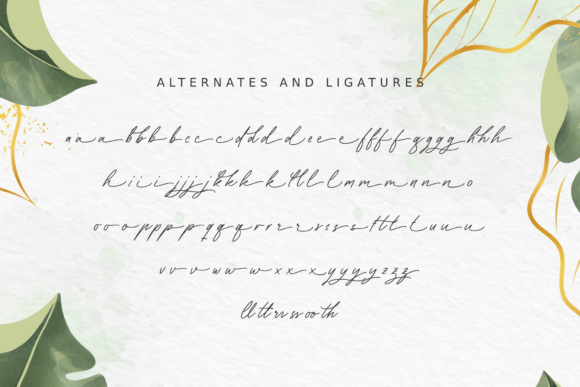 ALTERNATES AND LIGATURES
a a a b b b b c c c d d d d e e e f f f f g g g g h h h
h i i i j j j j k k k k l l l l m m m n n n o
o o o p p p p q q q r r r r s s s s t t t t u u u
v v v w w w x x x y y y y z z z
ll tt rr ss oo th